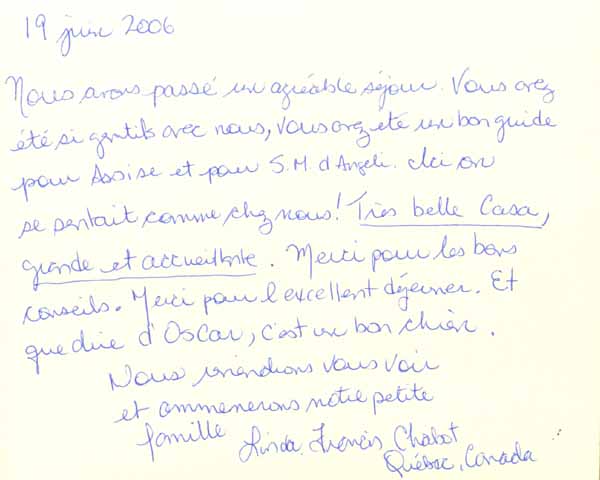 19 juin 2006
Nous avons passé un agréable séjour. Vous avez
été si gentils avec nous, vous avez été un bon guide
pour Assise et pour S.M. d'Angeli. Ici on
se sentait comme chez nous! Très belle Casa,
grande et accueillante. Merci pour les bons
conseils. Merci pour l'excellent déjeuner. Et
que dire d'Oscar, c'est un bon chien.
Nous viendrons vous voir
et ammenerons notre petite
famille Linda Francis Chabot
Québec, Canada